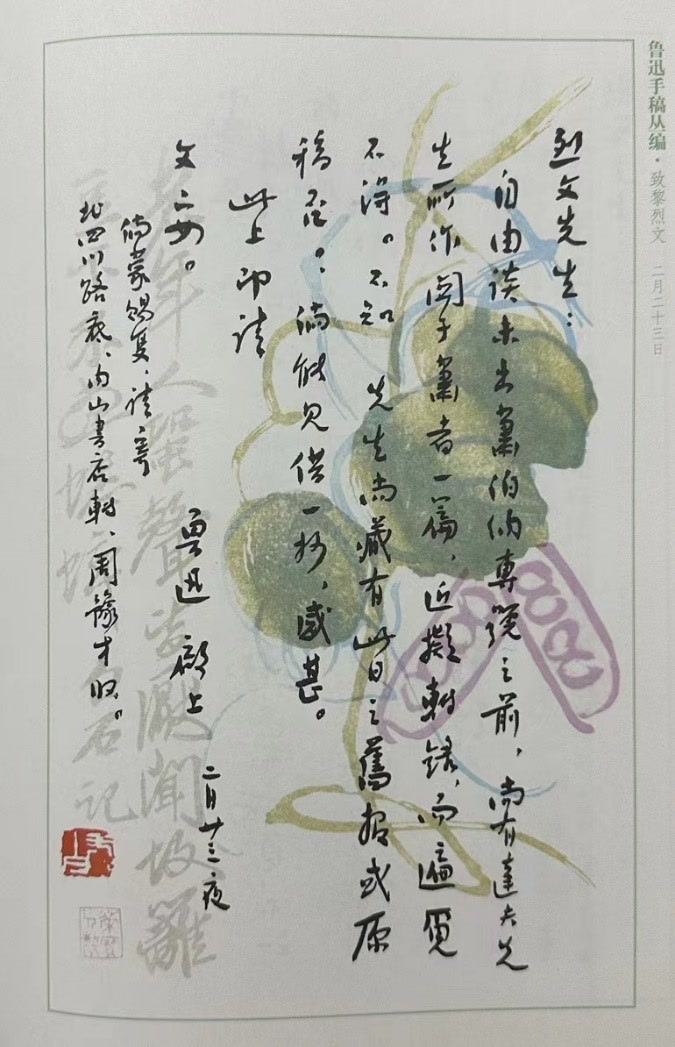 鲁迅手稿丛编·致黎烈文 二月二十三日
烈文先生：
自由谈未出萧伯纳专号之前，尚有达夫先
生所作关于萧者一篇，近拟转录，而遍觅
不得。不知 先生尚藏有此日之旧报或原
稿否？倘能见借一抄，感甚。
此上即请
文安。
鲁迅 启上 二月廿三夜
倘蒙赐复，请寄
北四川路底、内山书店转、周豫才收。